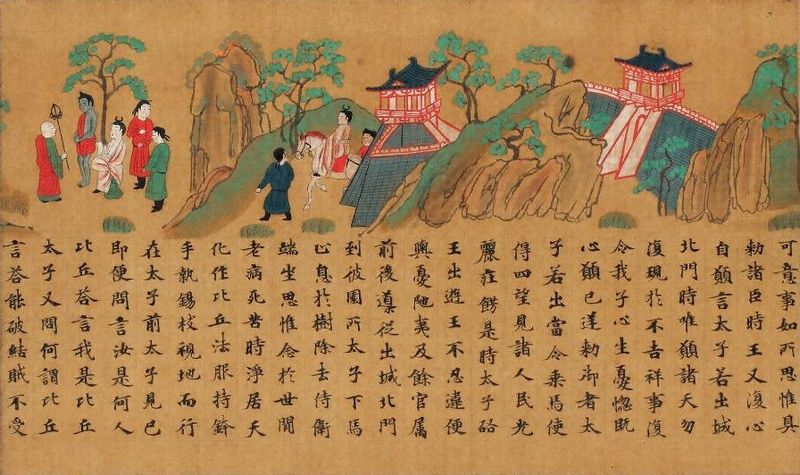 可意事如所思惟具
勅諸臣時王又復心
自願言太子若出城
北門時唯願諸天勿
復現於不吉祥事復
令我子心生憂惱既
心願已逹勅御者太
子若出當令乗馬使
得四望見諸人民光
麗莊餝是時太子啓
王出遊王不忍違便
與憂陁夷及餘官属
前後導從出城北門
到彼園所太子下馬
止息於樹除去侍衛
端坐思惟念於世間
老病死苦時淨居天
化作比丘法服持鉢
手執錫杖視地而行
在太子前太子見已
即便問言汝是何人
比丘荅言我是比丘
太子又問何謂比丘
言荅能破結賊不受